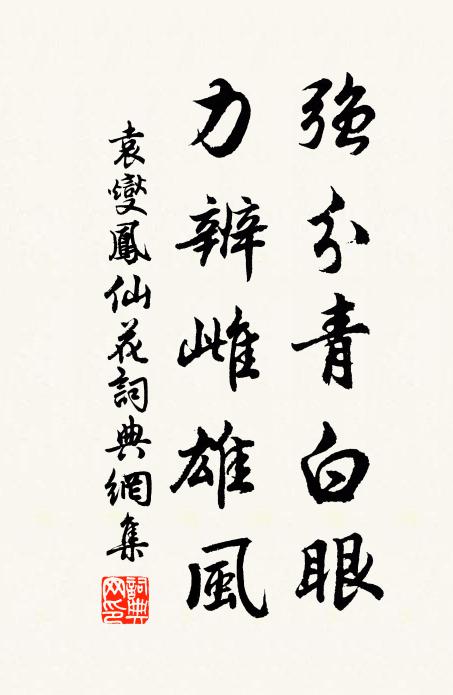 強分青白眼
力辨雌雄風
袁燮鳳仙花詞典網集
詞典網印